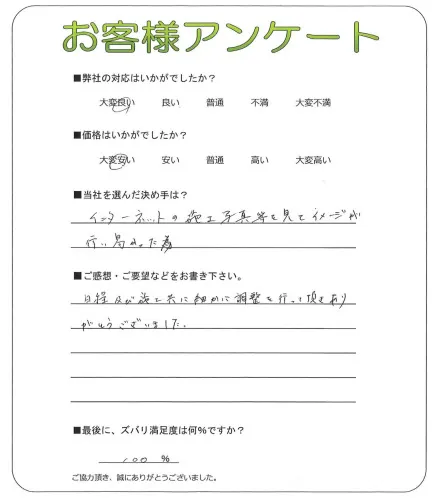 お客様アンケート
■弊社の対応はいかがでしたか?
大変良い 良い 普通 不満 大変不満
■価格はいかがでしたか?
大変安い 安い 普通 高い 大変高い
■当社を選んだ決め手は?
インターネットの施工写真等を見てイメージが
行い易かった為
■ご感想・ご要望などをお書き下さい。
日程及び施工共に細かに調整を行って頂きあり
がとうございました。
■最後に、ズバリ満足度は何%ですか?
100 %
ご協力頂き、誠にありがとうございました。